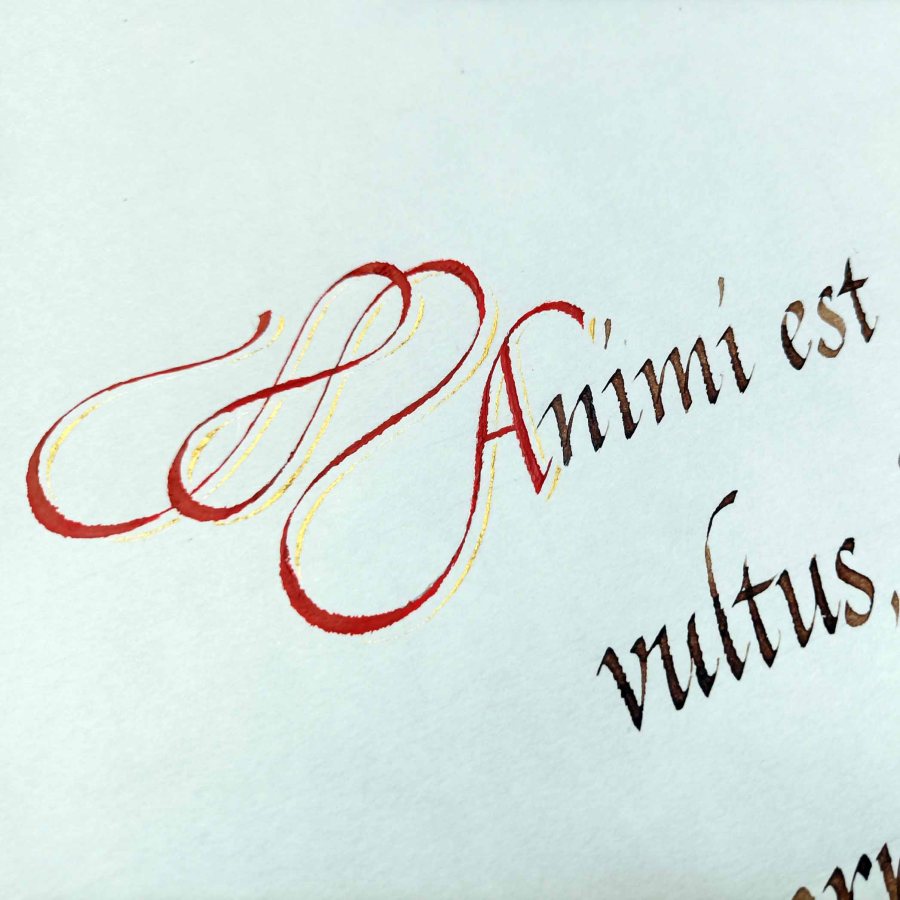 Animi est
vultus,